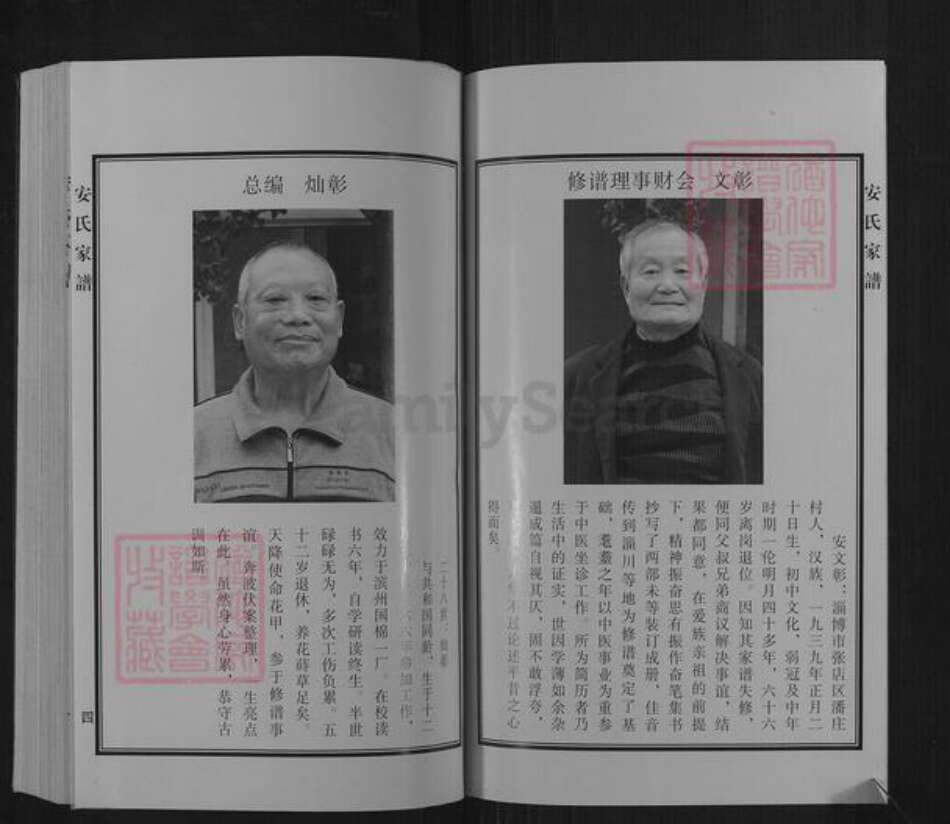 安氏家譜
修谱理事财会 文彰
安文彰：淄博市张店区潘庄
村人，汉族，一九三九年正月二
十日生，初中文化，弱冠及中年
时期一伦明月四十多年，六十六
岁离岗退位。因知其家谱失修，
便同父叔兄弟商议解决事谊，结
果都同意，在爱族亲祖的前提
下，精神振奋思有振作奋笔集书
抄写了两部未等装订成册，佳音
传到淄川等地为修谱奠定了基
础，耄耋之年以中医事业为重参
于中医坐诊工作。所为简历者乃
生活中的证实，世因学薄如余杂
遏成篇自视其仄，固不敢浮夸，
不过论述平昔之心
得而矣。
总编 灿彰
二十八世：灿彰
与共和国同龄，生于十二
参加工作，
效力于滨州国棉一厂。在校读
书六年，自学研读终生。半世
碌碌无为，多次工伤负累。五
十二岁退休，养花莳草足矣。
天降使命花甲，参于修谱事
谊，奔波伏案整理，一生亮点
在此，虽然身心劳累，恭守古
训如斯
安氏家譜
四
FamilySearch